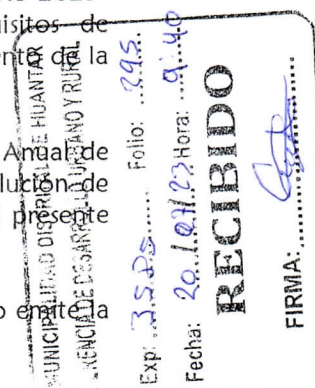 uisitos de
de la
Anual de
olución de
presente
emite la
MUNICIPALIDAD DISTRITAL DE HUANTAR
GERENCIA DE DESARROLLO URBANO Y RURAL
Exp: 3505 Folio: 295
Fecha: 20/07/23 Hora: 9:40
RECIBIDO
FIRMA: